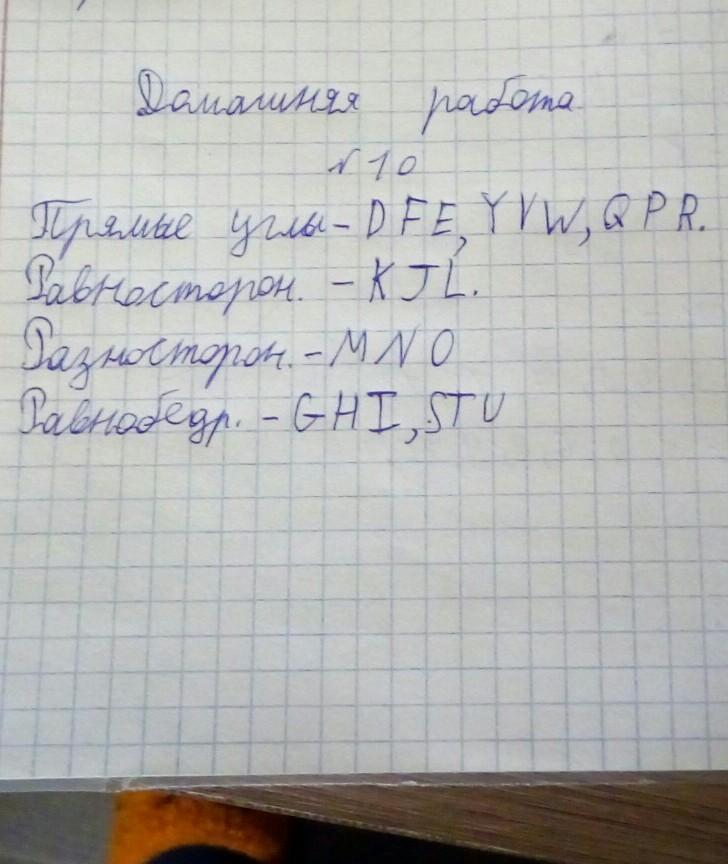 Домашняя работа
№10
Прямые углы - DFE, YVW, QPR.
Равносторон. - KJL.
Разносторон. - MNO
Равнобедр. - GHI, STU